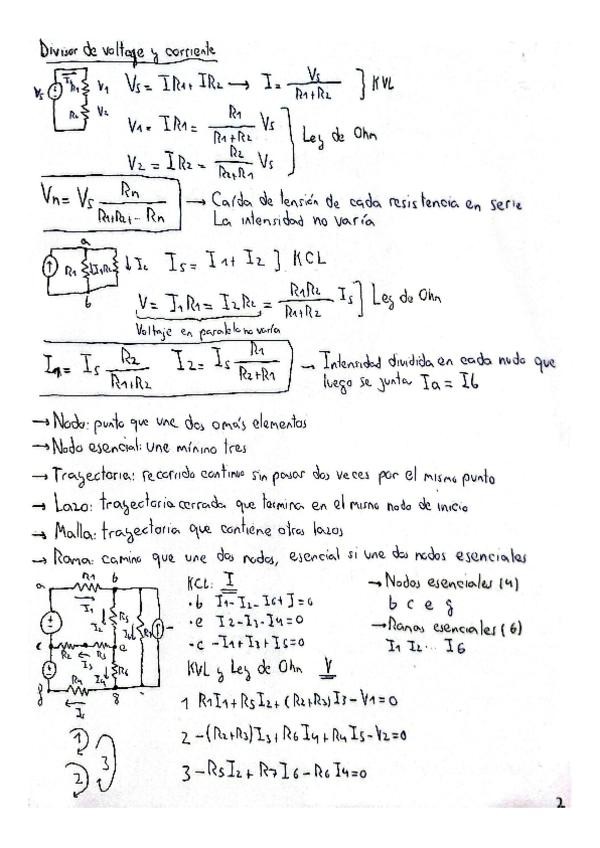 Divisor de voltage y corriente
Vs = IR1 + IR2 → I = Vs / (R1+R2) } KVL
V1 = IR1 = R1 / (R1+R2) Vs
V2 = IR2 = R2 / (R2+R1) Vs } Ley de Ohm
Vn = Vs Rn / (R1+R2+...Rn) → Caída de tensión de cada resistencia en serie
La intensidad no varía
Is = I1 + I2 } KCL
V = I1R1 = I2R2 = R1R2 / (R1+R2) Is } Ley de Ohm
Voltaje en paralelo no varía
I1 = Is R2 / (R1+R2) I2 = Is R1 / (R2+R1) → Intensidad dividida en cada nudo que
luego se junta Ia = Ib
→ Nodo: punto que une dos o más elementos
→ Nodo esencial: une mínimo tres
→ Trayectoria: recorrido continuo sin pasar dos veces por el mismo punto
→ Lazo: trayectoria cerrada que termina en el mismo nodo de inicio
→ Malla: trayectoria que contiene otros lazos
→ Rama: camino que une dos nodos, esencial si une dos nodos esenciales
KCL: I
· b I1-I2-I6+I=0
· e I2-I3-I4=0
· c -I1+I3+I5=0
→ Nodos esenciales (4)
b c e g
→ Ramas esenciales (6)
I1 I2... I6
KVL y Ley de Ohm V
1 R1I1+R5I2+(R2+R3)I3-V1=0
2 -(R2+R3)I3+R6I4+R4I5-V2=0
3 -R5I2+R7I6-R6I4=0
2